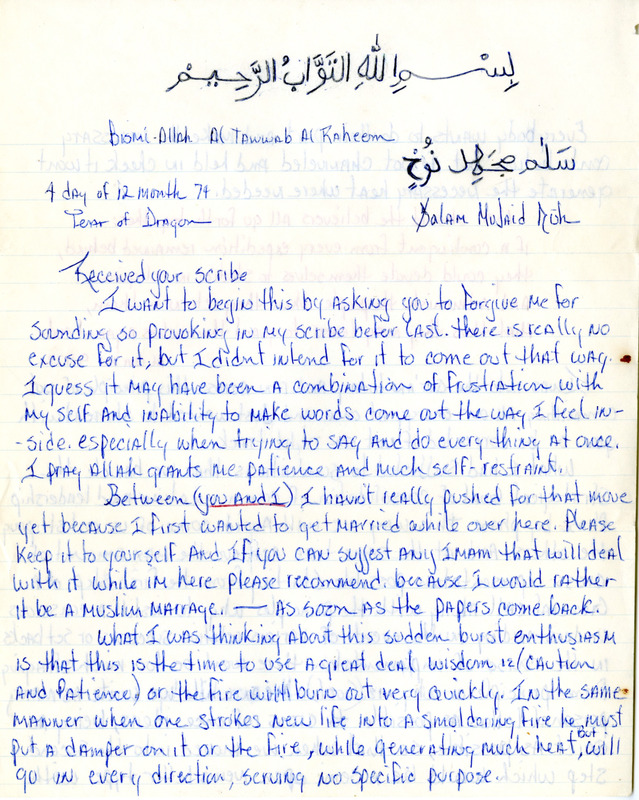 بِسْمِ اللهِ التَّوَّابُ الرَّحِيم
Bismi-Allah Al Tawwab Al Raheem
4 day of 12 month 74
Year of Dragon
Salam Mujaid Nuh
Received your scribe
I want to begin this by asking you to forgive me for
sounding so provoking in my scribe befor last. there is really no
excuse for it, but I didnt intend for it to come out that way.
I guess it may have been a combination of frustration with
my self and inability to make words come out the way I feel in-
-side. especially when trying to say and do every thing at once.
I pray Allah grants me patience and much self-restraint.
Between (you and I) I havnt really pushed for that move
yet because I first wanted to get married while over here. Please
keep it to yourself and If you can suggest any Imam that will deal
with it while im here please recommend. because I would rather
it be a Muslim marrage. — As soon as the papers come back.
What I was thinking about this sudden burst enthusiasm
is that this is the time to use a great deal wisdom (caution
and patience) or the fire will burn out very quickly. In the same
manner when one strokes new life into a smoldering fire he must
put a damper on it or the fire, while generating much heat, but will
go in every direction, serving no specific purpose.